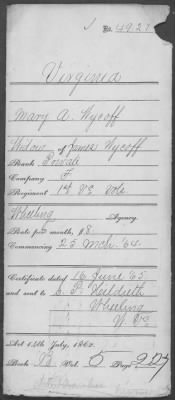 No. 4927
Virginia
Mary A. Wycoff
Widow of James Wycoff
Rank Private
Company F
Regiment 1st Va Vols.
Wheeling Agency
Rate per month, $8
Commencing 25 Mch. '64.
Certificate dated 16 June '65
and sent to E. P. Hildreth
Wheeling
W Va
Act 14th July, 1862.
Book B Vol. 5 Page 207